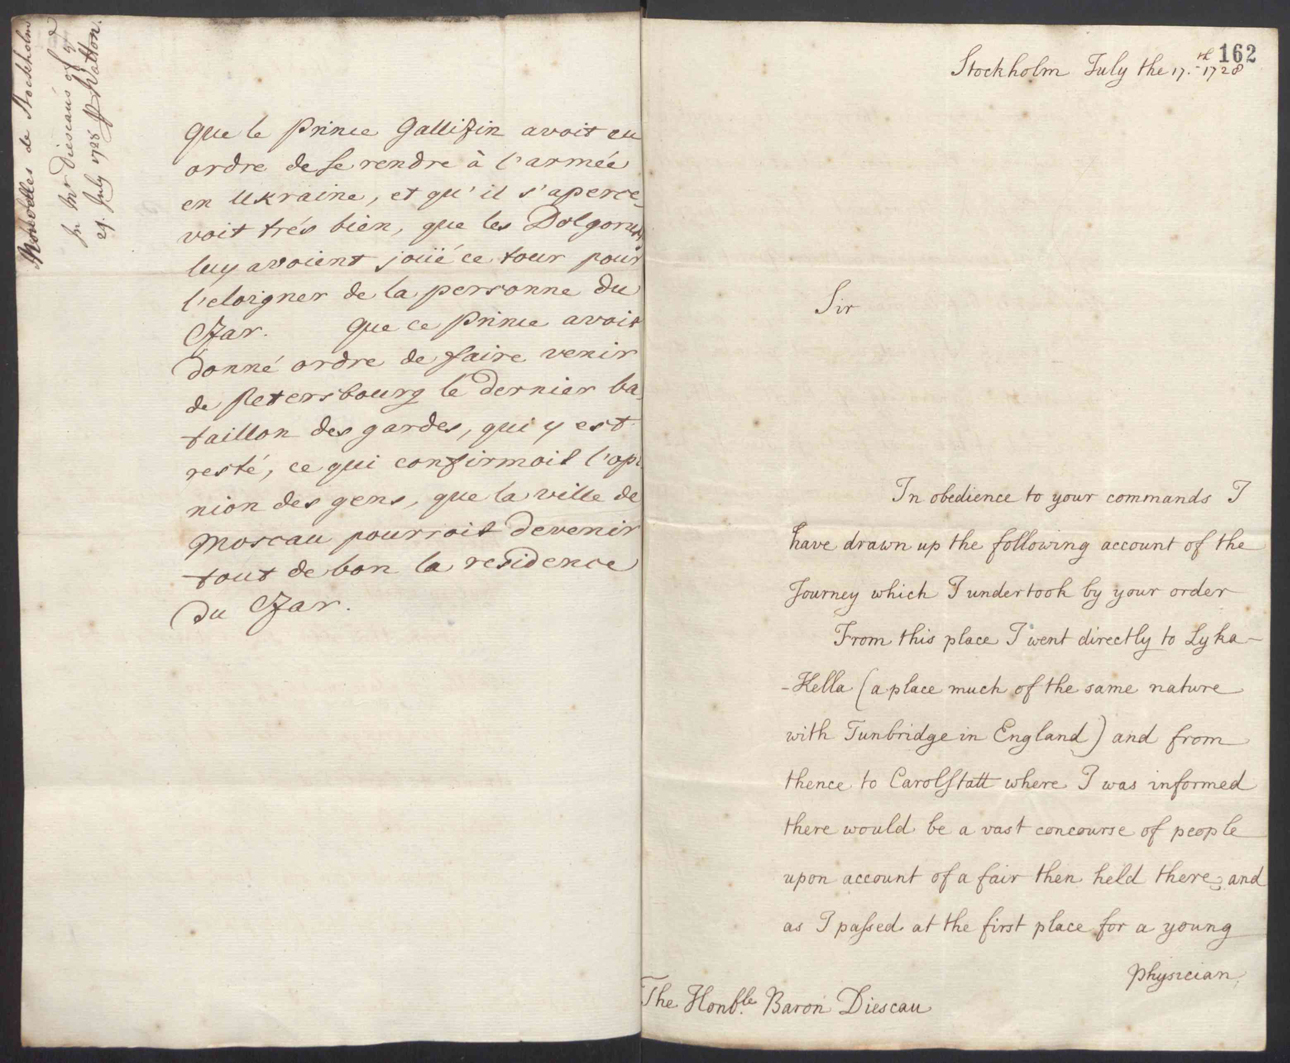 Nouvelles de Stockholm
in Mr Diescau's of ye
29. July 1728 Walton.
que le Prince Gallizin avoit eu
ordre de se rendre à l'armée
en Ukraine, et qu'il s'aperce-
voit trés bien, que les Dolgoruki
luy avoient joüé ce tour pour
l'eloigner de la personne du
Czar. que ce Prince avoit
donné ordre de faire venir
de Petersbourg le dernier ba-
taillon des gardes, qui y est
resté, ce qui confirmoit l'opi
nion des gens, que la ville de
Moscau pourroit devenir
tout de bon la residence
du Czar.
162
Stockholm July the 17.th 1728
Sir
In obedience to your commands I
have drawn up the following account of the
Journey which I undertook by your order
From this place I went directly to Lyka-
-Hella (a place much of the same nature
with Tunbridge in England) and from
thence to Carolstatt where I was informed
there would be a vast concourse of people
upon account of a fair then held there, and
as I passed at the first place for a young
Physician,
The Honble. Baron Diescau